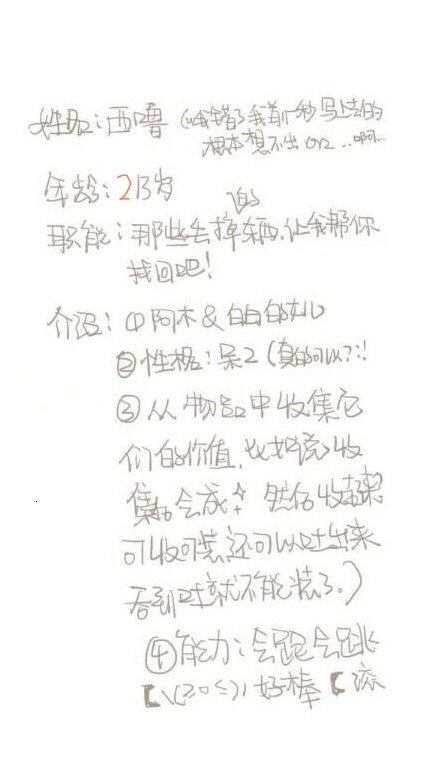 姓名：西噜（我错了我前一秒写上去的
根本想不出orz…啊…
年龄：213岁
职能：那些丢掉的东西，让我帮你
找回吧！
介绍：①阿木&白白的女儿
②性格：呆2（真的可以？！
③从物品中收集它
们的价值，比如说收
集 会成 然后收起来
可收可装还可以吐出来
吞到 就不能装了。）
④能力：会跑会跳
【\(≥o≤)/好棒【滚